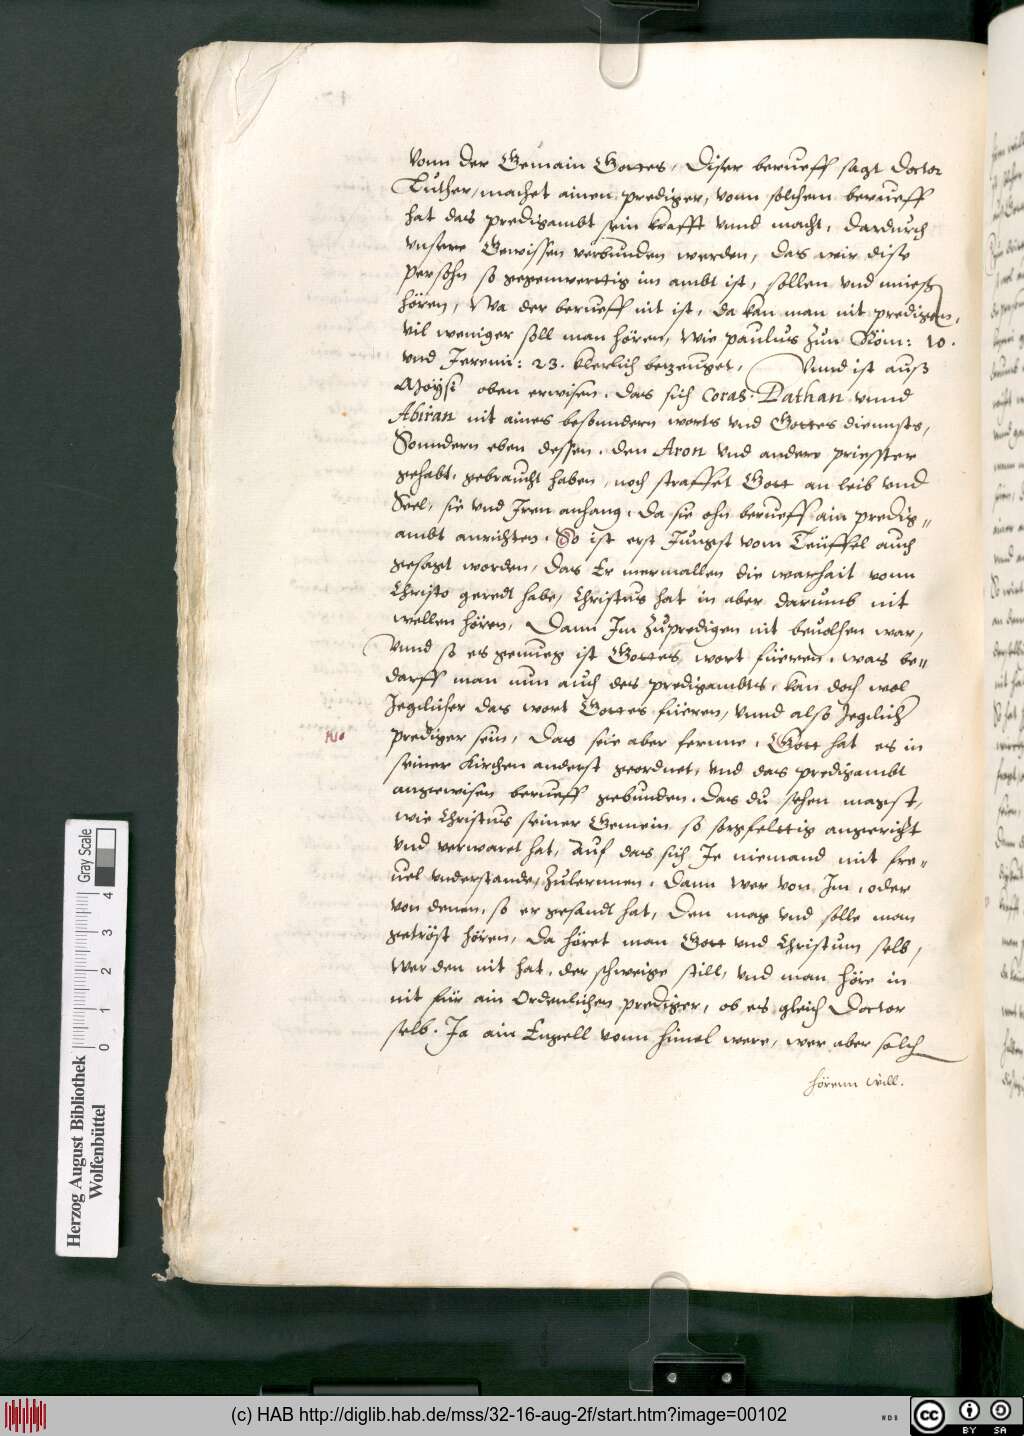 Vonn der Gemain Gottes, Diser berueff sagt Doctor
Luther, machet ainen prediger, vonn solchem berueff
hat das predigambt sein krafft vnnd macht, Dardurch
vnsere Gewissen verbunden werden, das wir dise
persohn so gegenwerttig im ambt ist, sollen vnd mueß
hören, Wa der berueff nit ist, da kan man nit predigen,
vil weniger soll man hören, Wie paulus Zun Röm: 10.
vnd Jeremi: 23. klerlich bezeuget, Vnnd ist auß
Moysi oben erwisen. das sich Coras. Dathan vnnd
Abiran nit aines besonndern worts vnd Gottes diennsts,
Sonndern eben dessen. den Aron vnd andere priesster
gehabt, gebraucht haben, noch straffet Gott an leib vnd
Seel, sie vnd Iren anhang. Da sie ohn berueff ain predig=
ambt anrichten. So ist erst Jungst vom Teüffel auch
gesagt worden, das Er mermallen die warhait vonn
Christo geredt habe, Christus hat in aber darumb nit
wellen hören, Dann Im Zupredigen nit beuolhen war,
Vnnd so es genueg ist Gottes wort füeren. was be=
darff man nun auch des predigambts, kan doch wol
Jegclicher das wort Gottes füeren, vnnd also Jegclich
prediger sein, Das seie aber fernne. Gott hat es in
seiner Kirchen anderst geordnet, vnd das predigambt
angewisen berueff gebunden. das du sehen magst,
wie Christus seiner Gemein so sorgfelttig angericht
vnd verwaret hat, auf das sich Je niemand mit fre=
uel vnderstande, Zulernnen. Dann wer von Im, oder
von denen, so er gesandt hat, Den mag vnd solle man
getröst hören, da höret man Gott vnd Christum selb,
Wer den nit hat, der schweige still, vnd man höre in
nit für ain Ordenlichen prediger, ob es gleich Doctor
selb. Ja ain Enngell vonn himel were, wer aber solch
hörenn will.
Herzog August Bibliothek
Wolfenbüttel
Gray Scale
0 1 2 3 4
(c) HAB http://diglib.hab.de/mss/32-16-aug-2f/start.htm?image=00102
WDB
CC BY SA